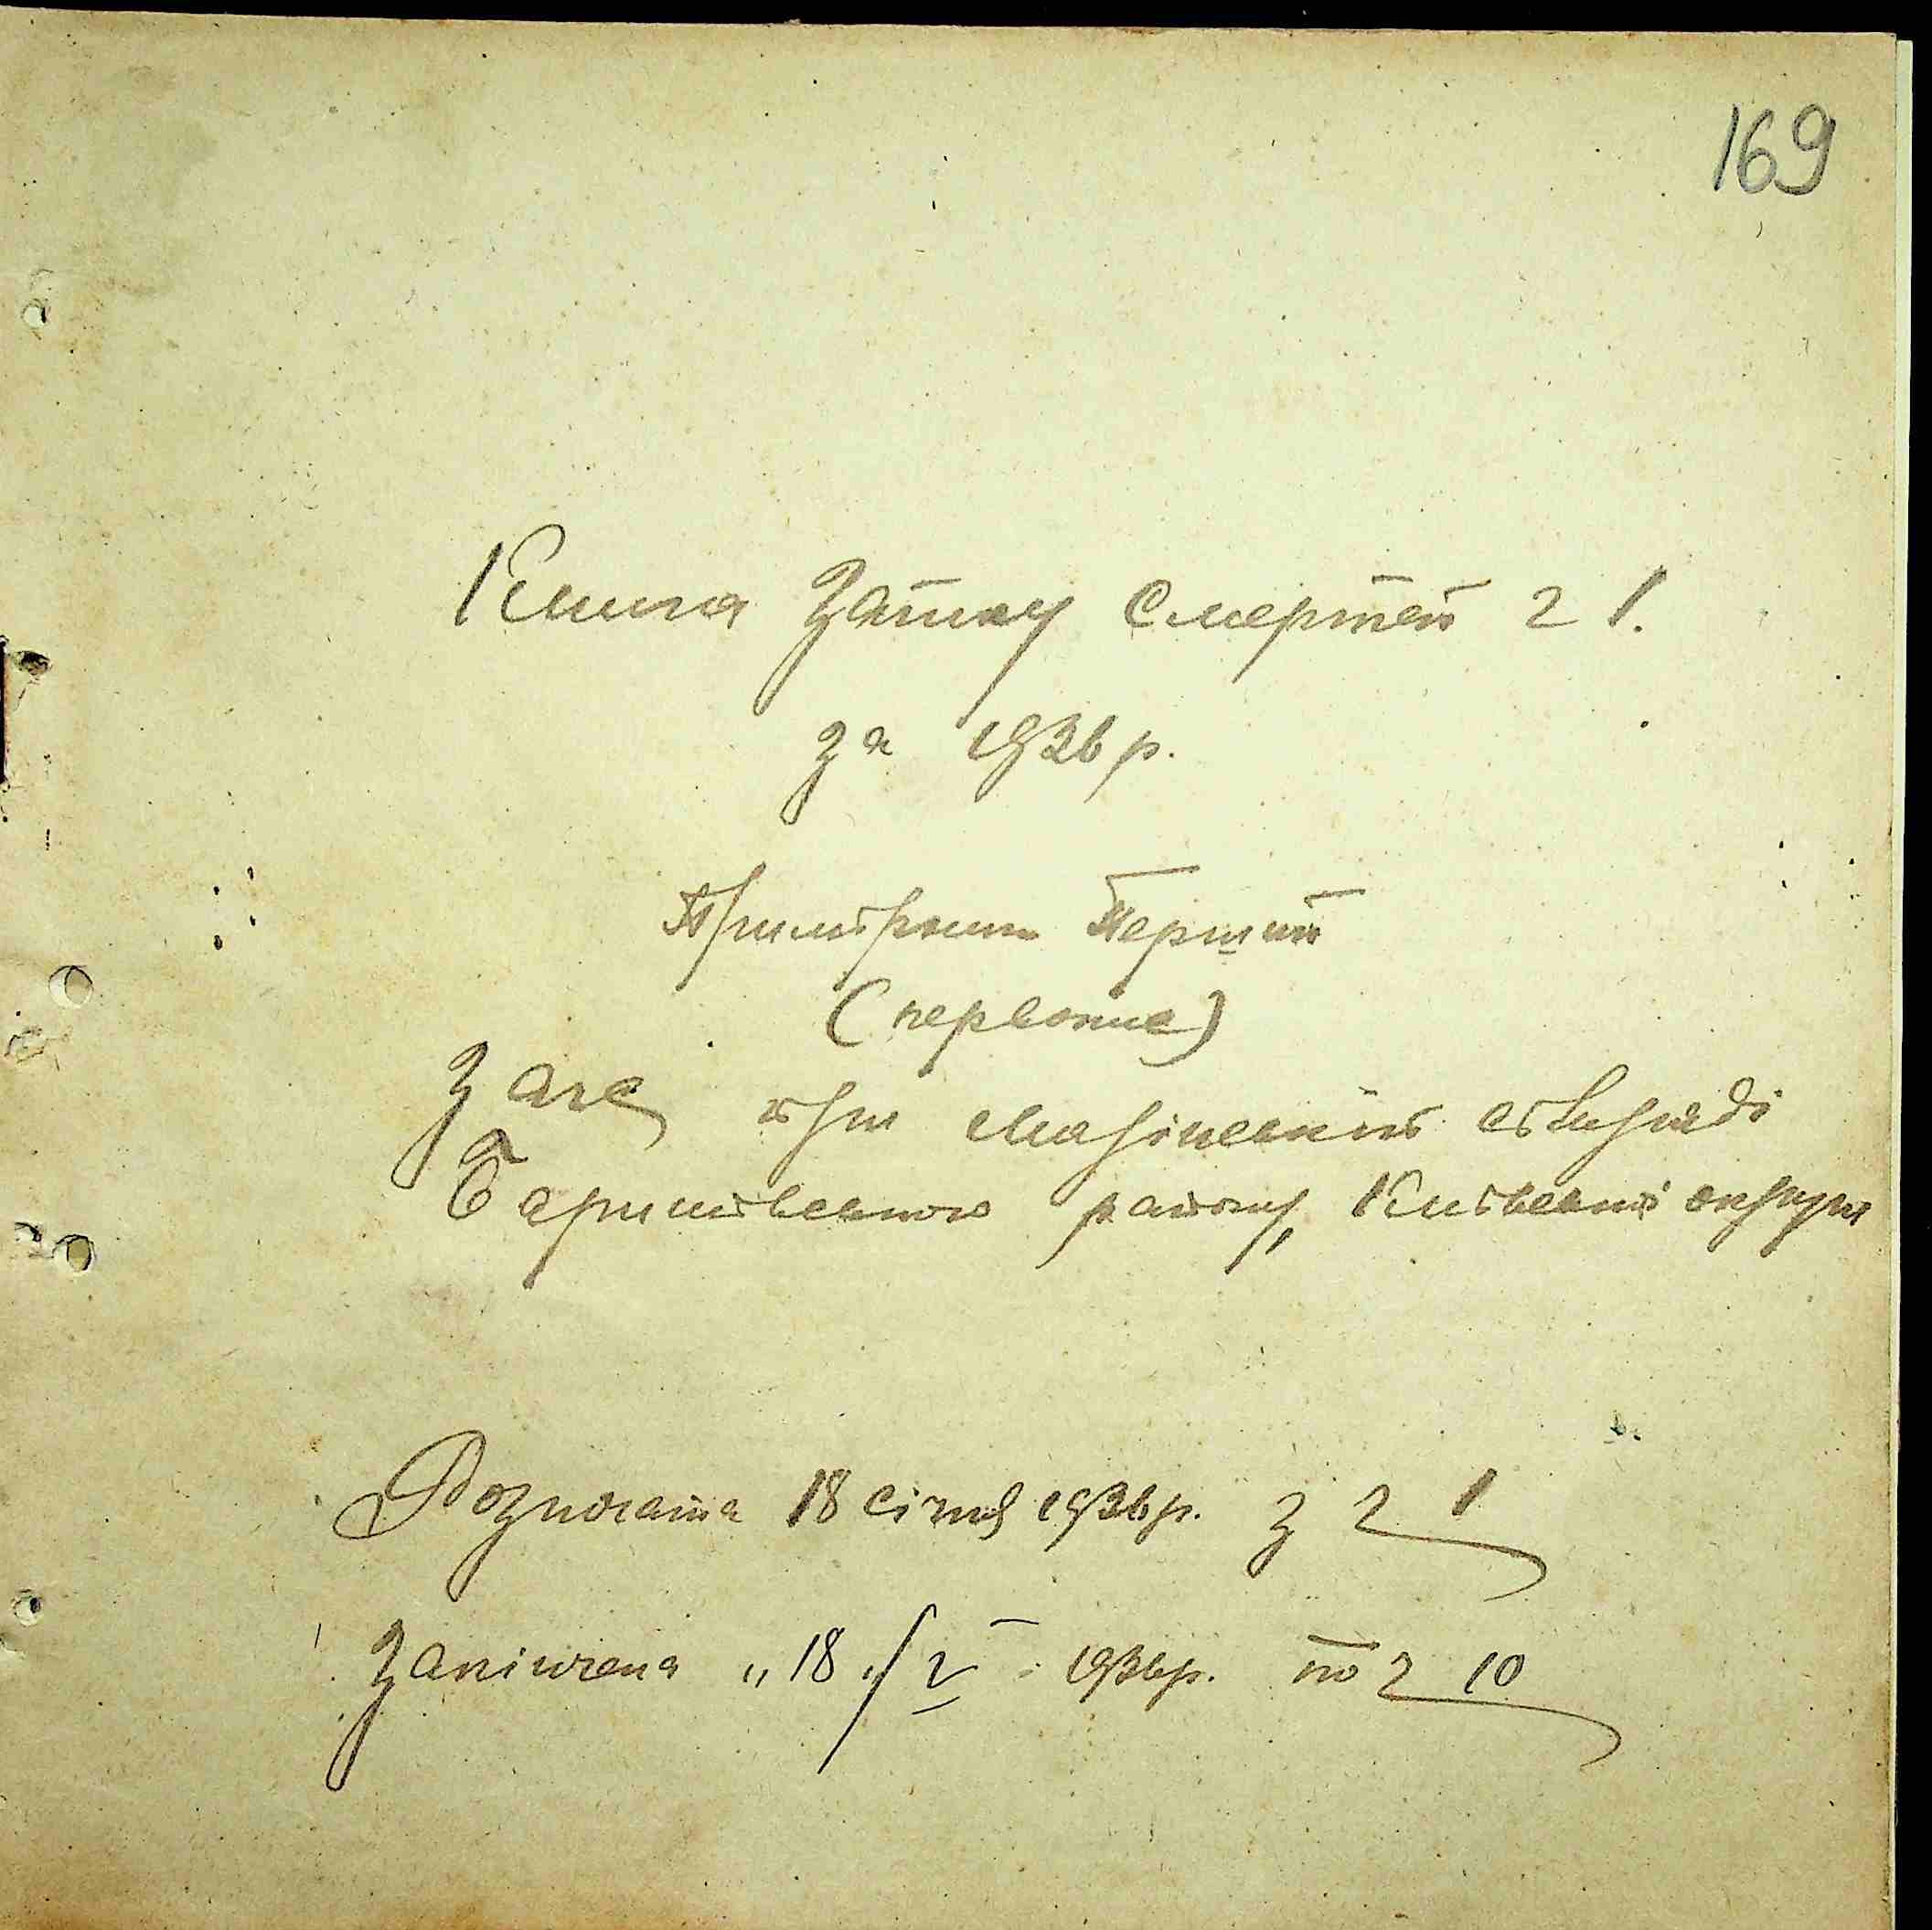 169
Книга Запису Смертей 2 1.
за 1936 р.
Примірник Перший
(первопис)
Загс при сільраді
Баришівського району, Київської округи
Розпочата 18 січня 1936р. з 2 1
Закінчена „18„/V 1936р. по 2 10